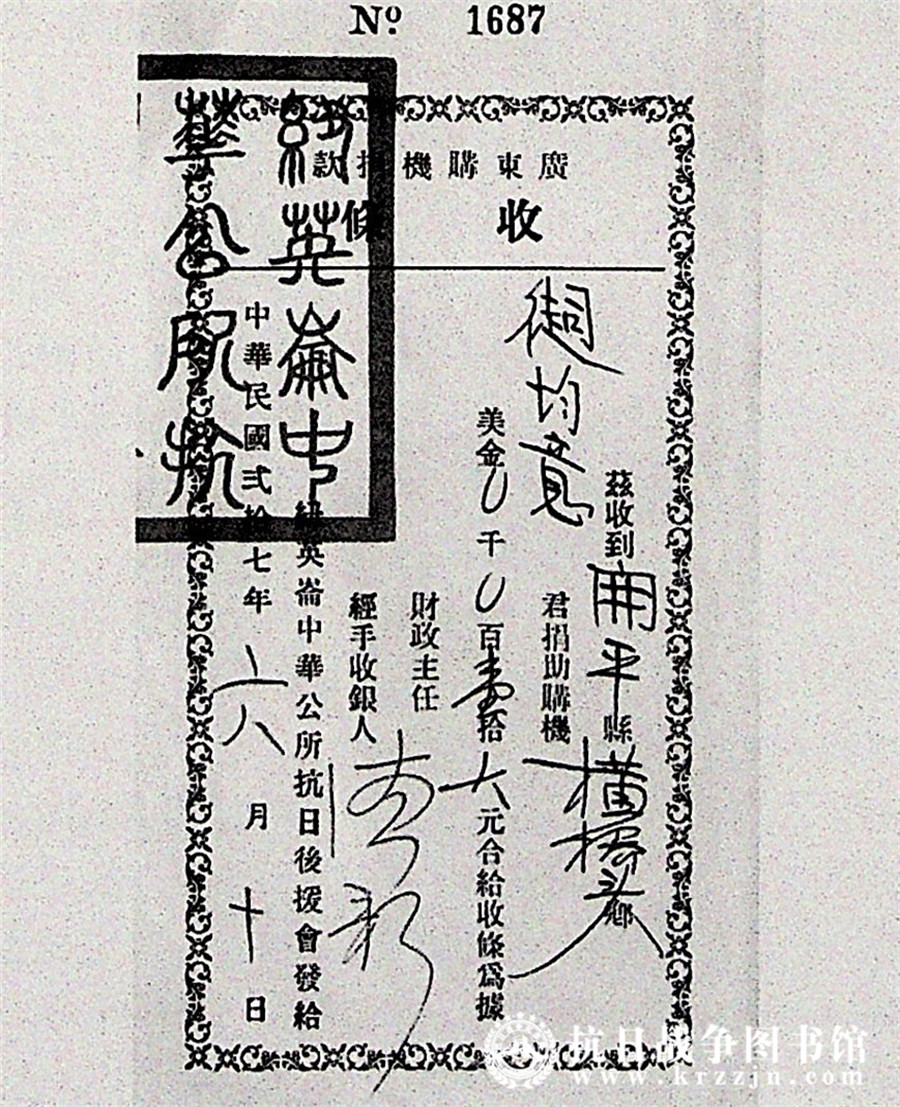 No. 1687
廣東購機捐款
收條
茲收到開平縣橫橋头鄉
均意君捐助購機
美金0千0百壹拾大元合給收條為據
財政主任
經手收銀人
紐英崙中華公所抗日後援會發給
中華民國弍拾七年六月十日
紐英崙中
華公所抗
抗日战争图书馆
www.krzzjn.com